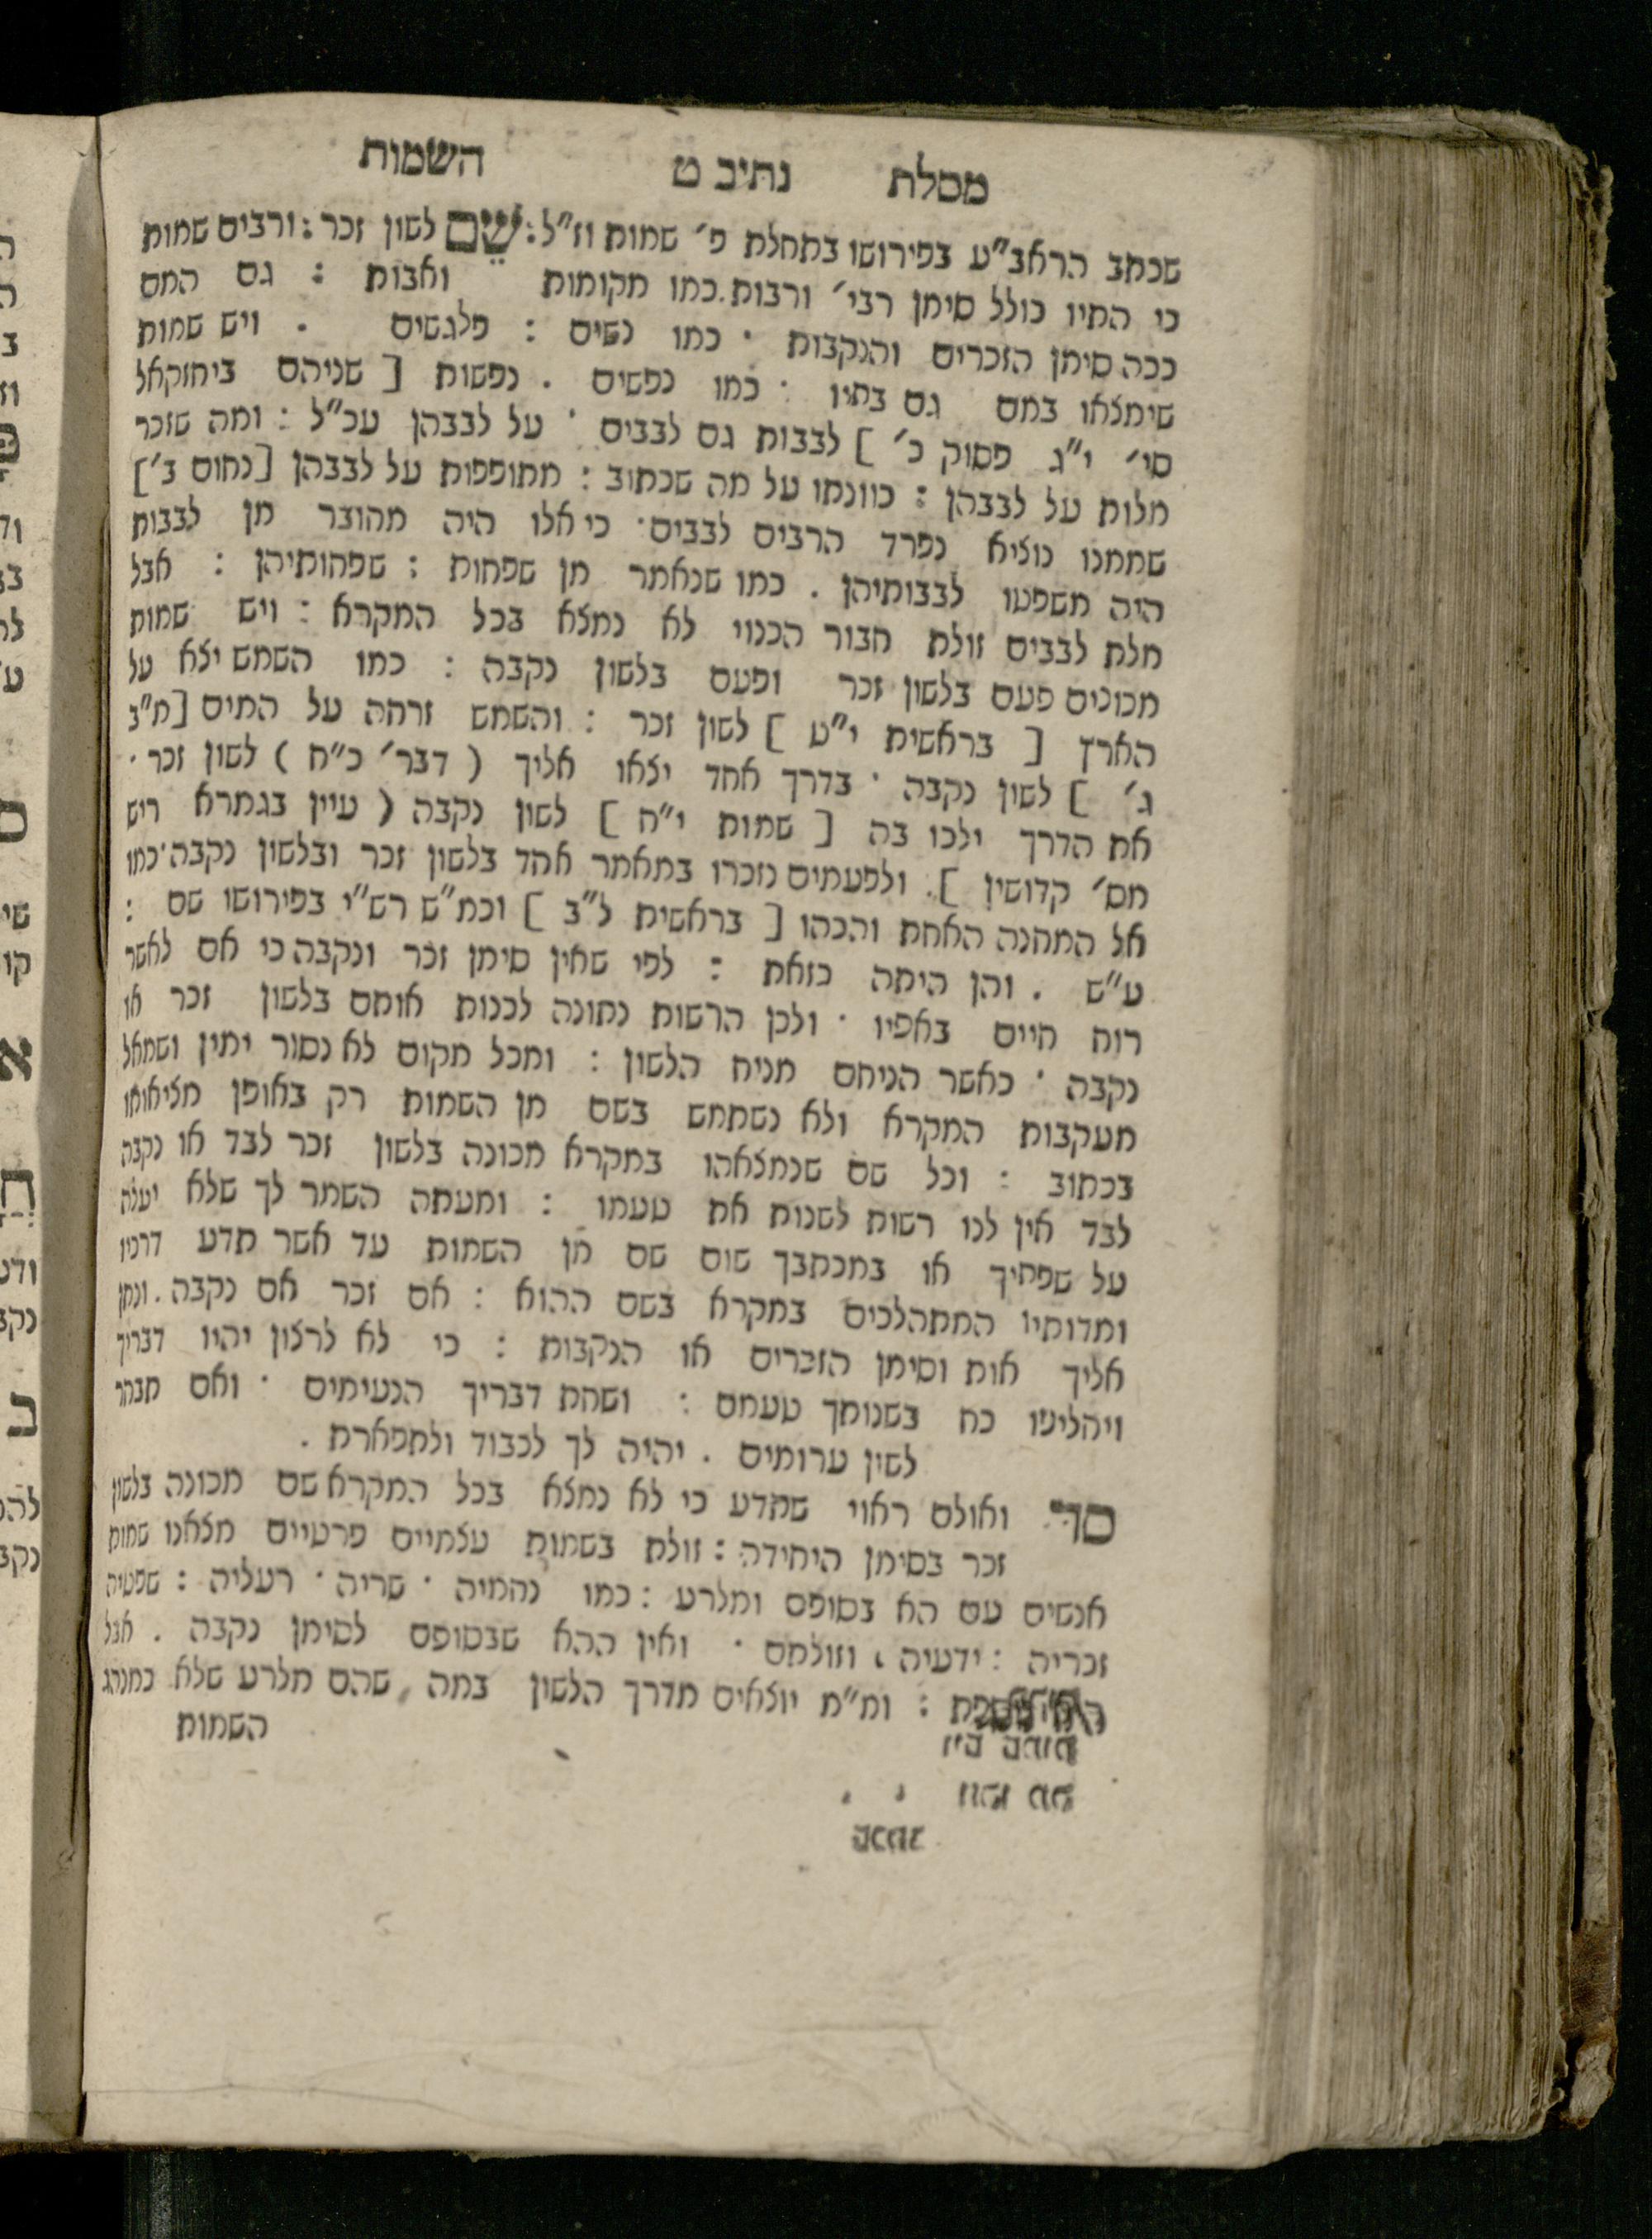 מסלת נתיב ט השמות
שכתב הראב״ע בפירושו בתחלת פ׳ שמות וז״ל: שֵׁם לשון זכר: ורבים שמות
כי התיו כולל סימן רבי׳ ורבות. כמו מקומות ואבות : גם המם
ככה סימן הזכרים והנקבות . כמו נשים : פלגשים . ויש שמות
שימצאו במם גם בתיו : כמו נפשים . נפשות [ שניהם ביחזקאל
סי׳ י״ג פסוק כ׳ ] לבבות גם לבבים . על לבבהן עכ״ל : ומה שזכר
מלות על לבבהן : כוונתו על מה שכתוב : מתופפות על לבבהן [נחום ב׳]
שממנו נוציא נפרד הרבים לבבים. כי אלו היה מהובר מן לבבות
היה משפטו לבבותיהן . כמו שנאמר מן שפחות : שפחותיהן : אבל
מלת לבבים זולת חבור הכנוי לא נמצא בכל המקרא : ויש שמות
מכונים פעם בלשון זכר ופעם בלשון נקבה : כמו השמש יצא על
הארץ [ בראשית י״ט ] לשון זכר : והשמש זרחה על המים [מ״ב
ג׳ ] לשון נקבה . בדרך אחד יצאו אליך ( דבר׳ כ״ח ) לשון זכר .
את הדרך ילכו בה [ שמות י״ח ] לשון נקבה ( עיין בגמרא ריש
מס׳ קדושין ]. ולפעמים נזכרו במאמר אחד בלשון זכר ובלשון נקבה. כמו
אל המחנה האחת והכהו [ בראשית ל״ב ] וכמ״ש רש״י בפירושו שם :
ע״ש . והן היתה כזאת : לפי שאין סימן זכר ונקבה כי אם לאשר
רוח חיים באפיו . ולכן הרשות נתונה לכנות אותם בלשון זכר או
נקבה . כאשר הניחם מניח הלשון : ומכל מקום לא נסור ימין ושמאל
מעקבות המקרא ולא נשתמש בשם מן השמות רק באופן מציאותו
בכתוב : וכל שם שנמצאהו במקרא מכונה בלשון זכר לבד או נקבה
לבד אין לנו רשות לשנות את טעמו : ומעתה השמר לך שלא יעלה
על שפתיך או במכתבך שום שם מן השמות עד אשר תדע דרכיו
ומדותיו המתהלכים במקרא בשם ההוא : אם זכר אם נקבה . ונתן
אליך אות וסימן הזכרים או הנקבות : כי לא לרצון יהיו דבריך
ויחליפו כח בשנותך טעמם : ושחת דבריך הנעימים . ואם תבחר
לשון ערומים . יהיה לך לכבוד ולתפארת .
סד ואולם ראוי שתדע כי לא נמצא בכל המקרא שם מכונה בלשון
זכר בסימן היחידה : זולת בשמות עצמיים פרטיים מצאנו שמות
אנשים עם הא בסופם ומלרע : כמו נחמיה . שריה . רעליה : שפטיה
זכריה : ידעיה , וזולתם . ואין ההא שבסופם לסימן נקבה . אבל
: ומ״מ יוצאים מדרך הלשון במה , שהם מלרע שלא כמנהג
השמות